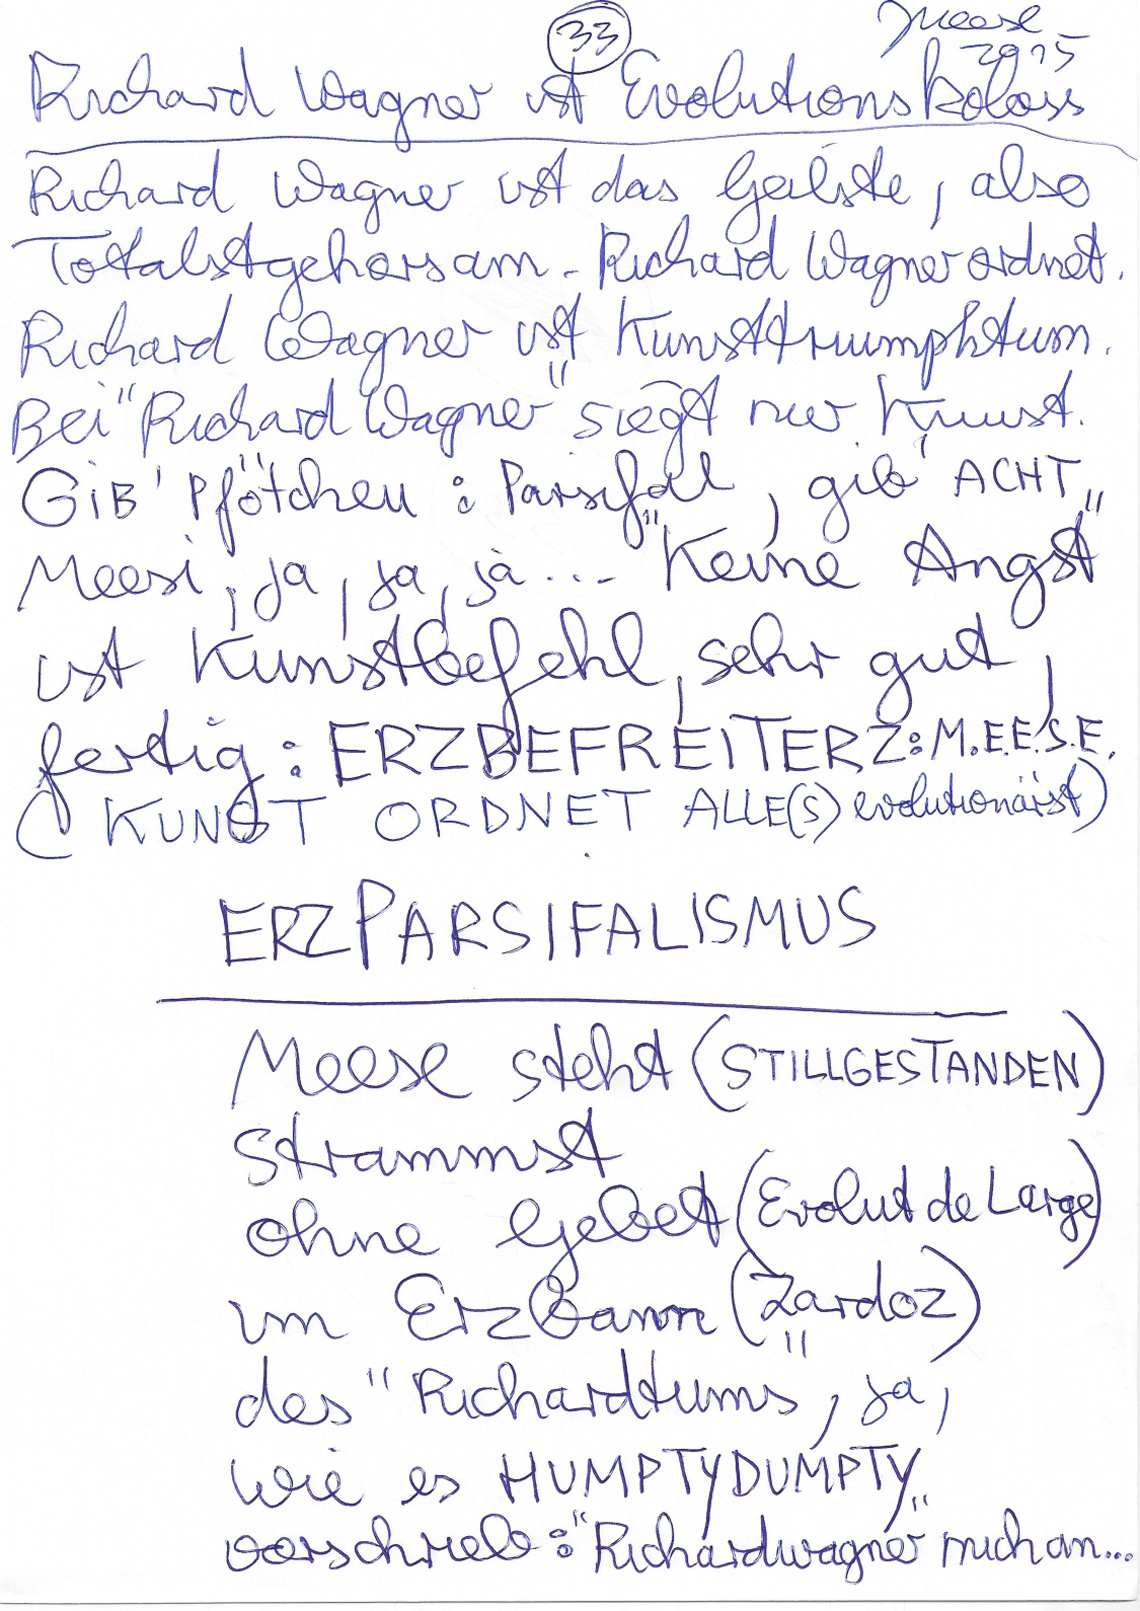 33
Meese
2015
Richard Wagner ist Evolutionskoloss
Richard Wagner ist das Geilste, also
Totalstgehorsam - Richard Wagner ordnet.
Richard Wagner ist Kunsttriumphtum.
Bei "Richard Wagner" siegt nur Kunst.
GiB' Pfötchen : Parsifal, gib' ACHT,
Meesi, ja, ja, ja... "Keine Angst"
ist Kunstbefehl, sehr gut,
fertig : ERZBEFREITERZ: M.E.E.S.E.
(KUNST ORDNET ALLE(S) evolutionärst)
ERZPARSIFALISMUS
Meese steht (STILLGESTANDEN)
strammst
ohne Gebet (Evolut de Large)
im Erzbann (Zardoz)
des "Richardtums", ja,
wie es HUMPTYDUMPTY
vorschrieb : "Richardwagner" mich an...